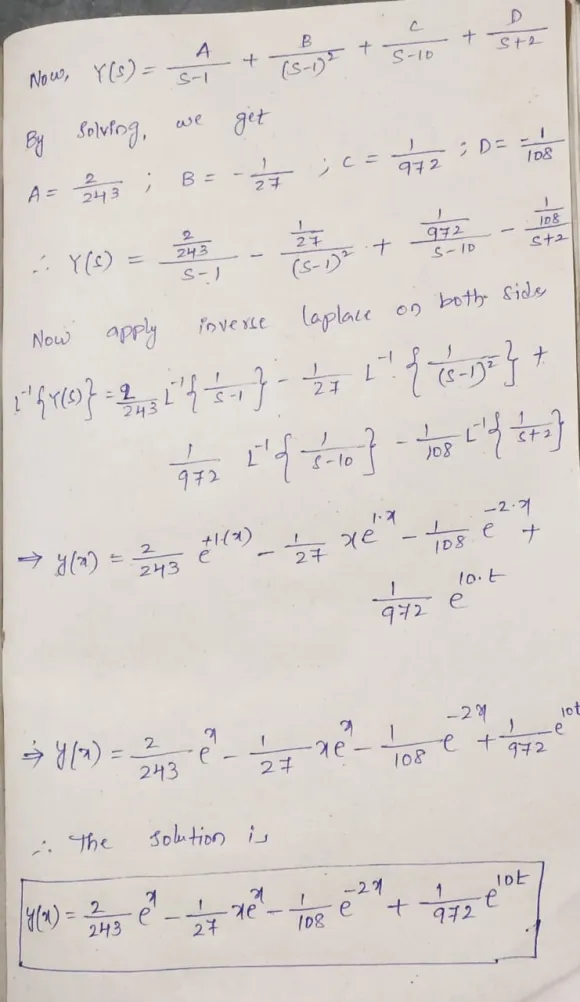 Now, Y(s) = A/(s-1) + B/(s-1)² + C/(s-10) + D/(s+2)
By solving, we get
A = 2/243 ; B = -1/27 ; C = 1/972 ; D = -1/108
∴ Y(s) = (2/243)/(s-1) - (1/27)/(s-1)² + (1/972)/(s-10) - (1/108)/(s+2)
Now apply inverse laplace on both side
L⁻¹{Y(s)} = 2/243 L⁻¹{1/(s-1)} - 1/27 L⁻¹{1/(s-1)²} +
1/972 L⁻¹{1/(s-10)} - 1/108 L⁻¹{1/(s+2)}
⇒ y(x) = 2/243 e^(+1·(x)) - 1/27 xe^(1·x) - 1/108 e^(-2·x) +
1/972 e^(10·t)
⇒ y(x) = 2/243 e^x - 1/27 xe^x - 1/108 e^(-2x) + 1/972 e^(10t)
∴ The solution is
y(x) = 2/243 e^x - 1/27 xe^x - 1/108 e^(-2x) + 1/972 e^(10t)